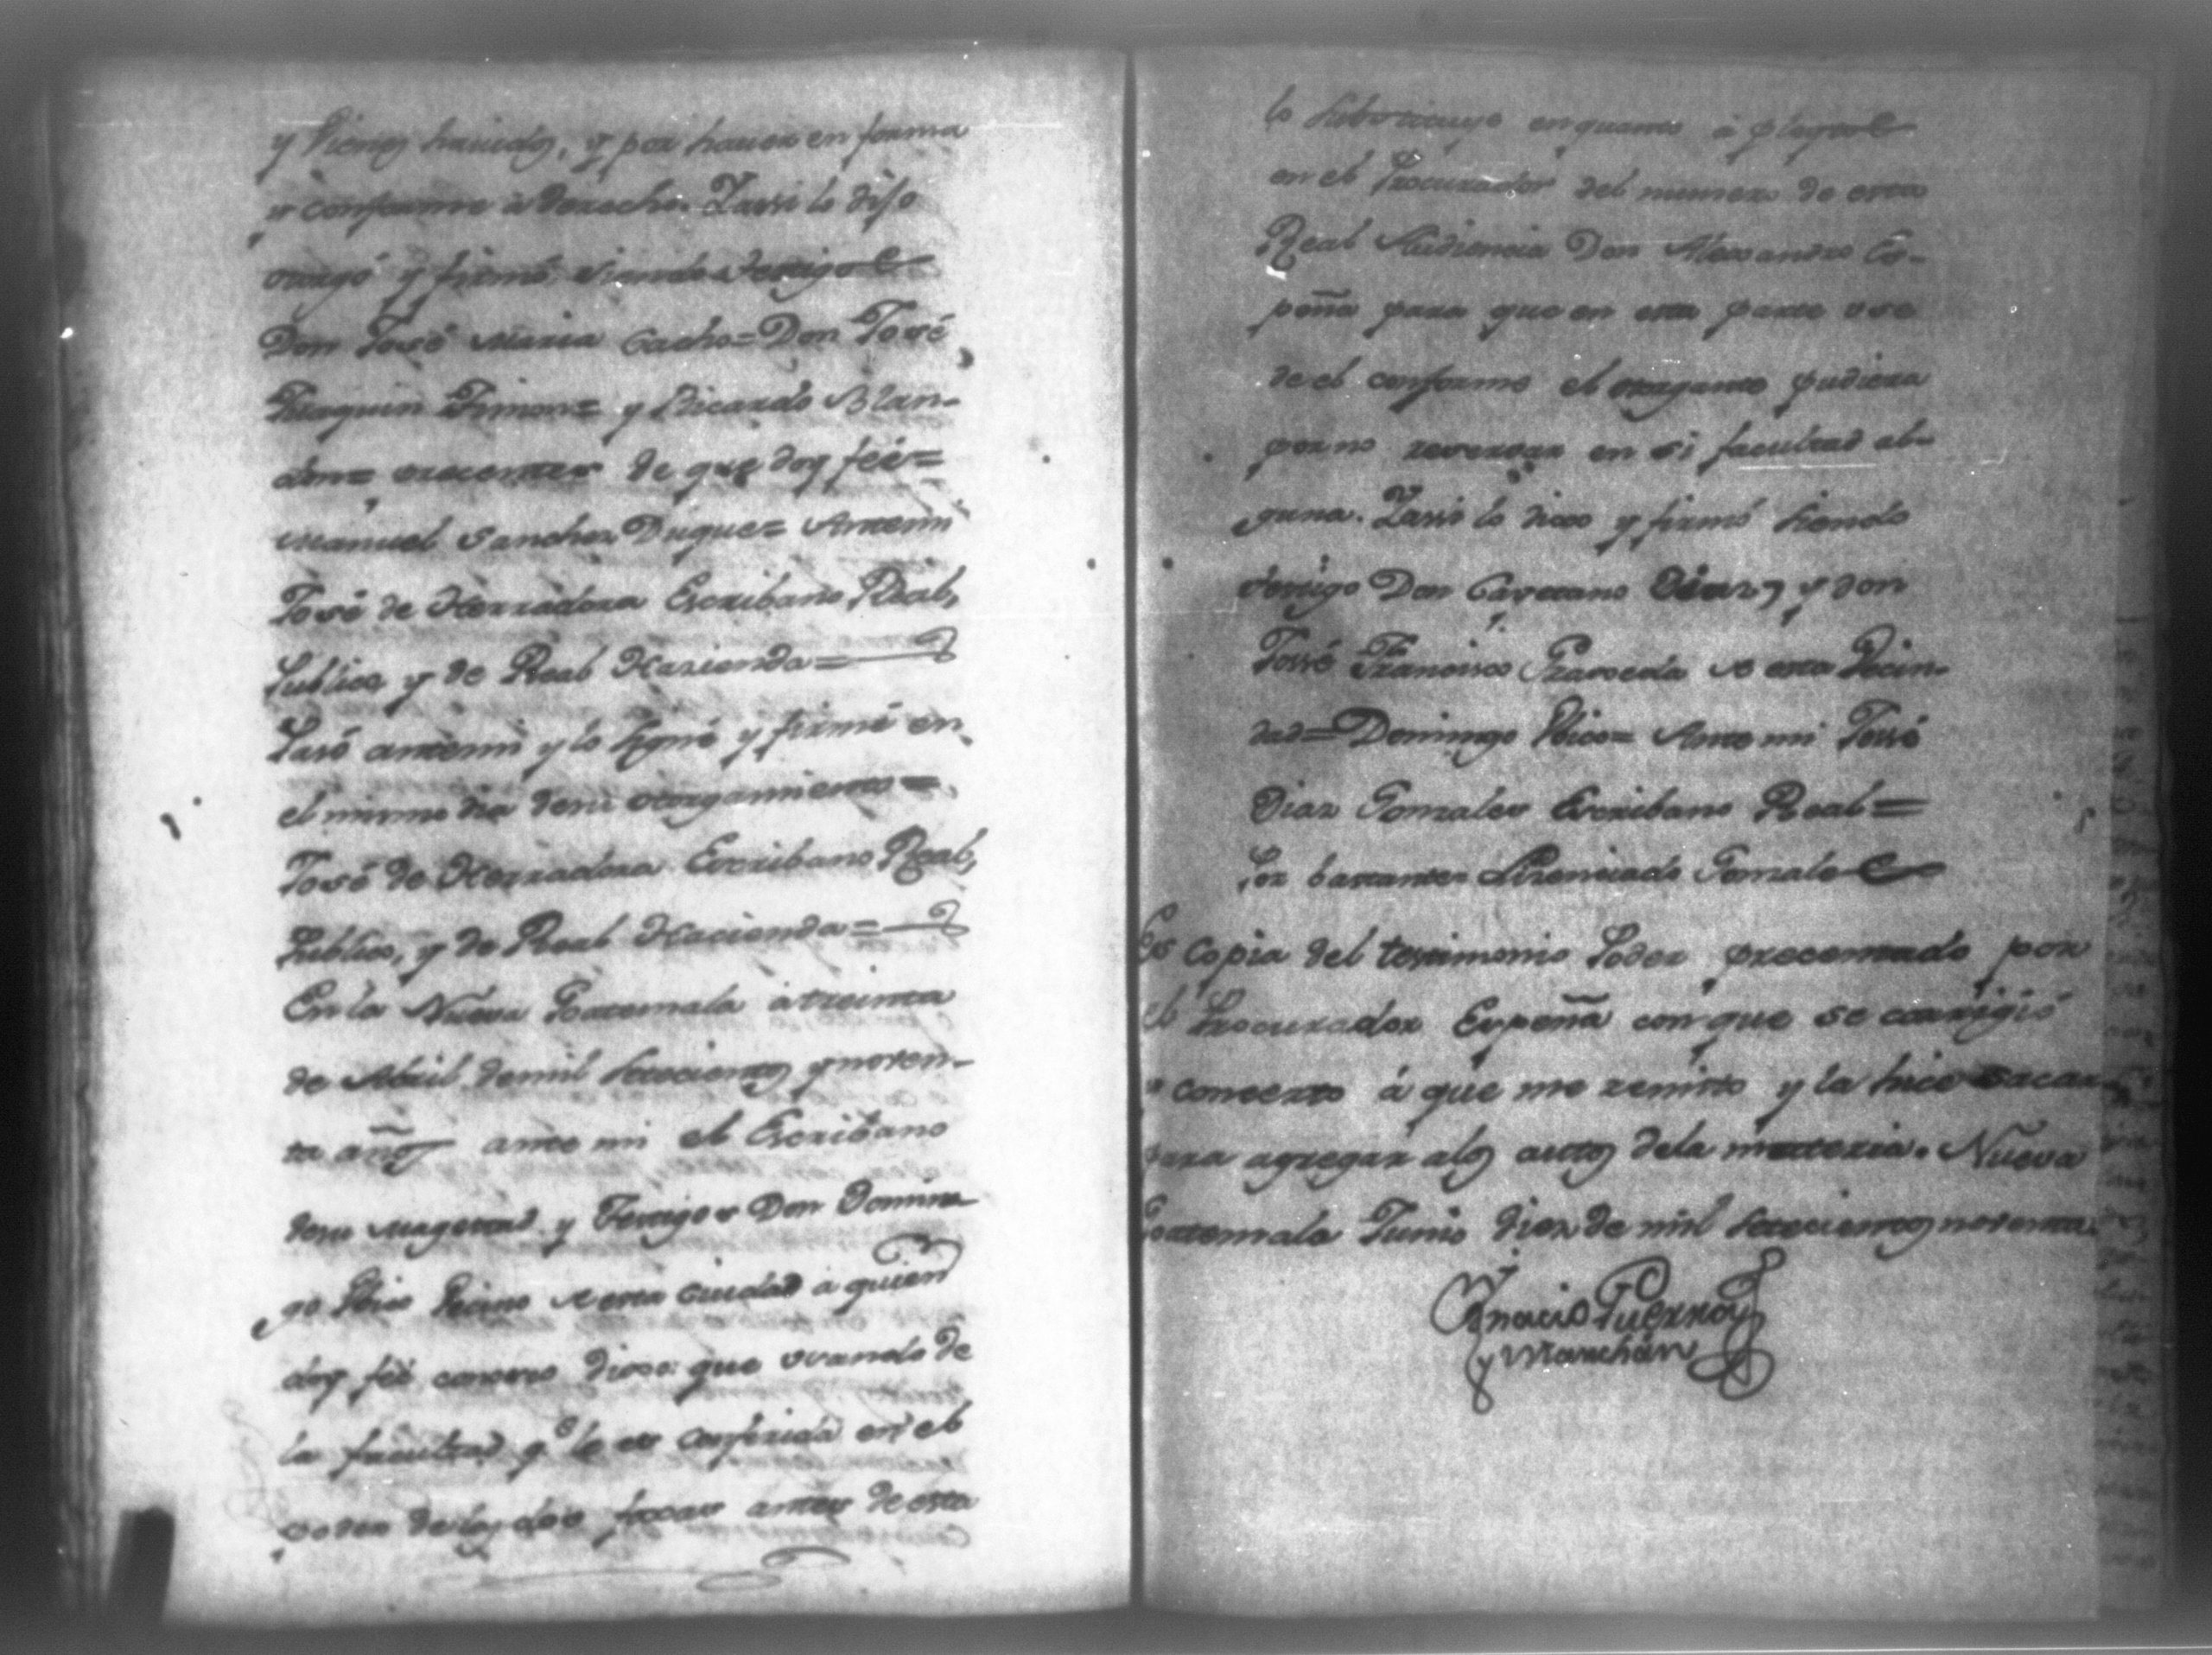 y vienes havidos, y por haver en forma
y conforme à derecho. Yassi lo dijo
otorgó y firmó, siendo testigos
Don José Maria Cacho= Don José
Joaquin Simon= y Ricardo Blan-
don= precentes de que doy feé=
Manuel Sanches Duque= Antemi
José de Herradora Escribano Real,
Publico, y de Real Hazienda=
Pasó antemi y lo signé y firmé en
el mismo dia desu otorgamiento=
José de Herradora Escribano Real,
Publico, y de Real Hacienda=
En la Nueva Goatemala à treinta
de Abril demil setecientos ynoven-
ta años ante mi el Escribano
desu Magestad y Testigos Don Domin-
go vecino esta ciudad a quien
doy feé conosco dixo: que usando de
la facultad qe. le es conferida en el
poder delas dos foxas antes de esta
lo substituye en quanto à pleytos
en el Procurador del numero de esta
Real Audiencia Don Alexandro Es-
peña para que en esta parte use
de el conforme el otorgante pudiera
por no reservar en si facultad al-
guna. Yassi lo dixo y firmó siendo
testigo Don Cayetano Dias, y don
José Francisco Gravoeda esta Vecin-
dad= Domingo Ante mi José
Diaz Gonzales Escribano Real=
Por bastante= Lisenciado Gonzales
Es copia del testimonio Poder precentado por
el Procurador Espeña con que se corrigió
y concerto à que me remito y la hice sacar
para agregar alos autos dela materia. Nueva
Goatemala Junio diez de mil setecientos noventa.
Ignacio Guerra
y Marchán